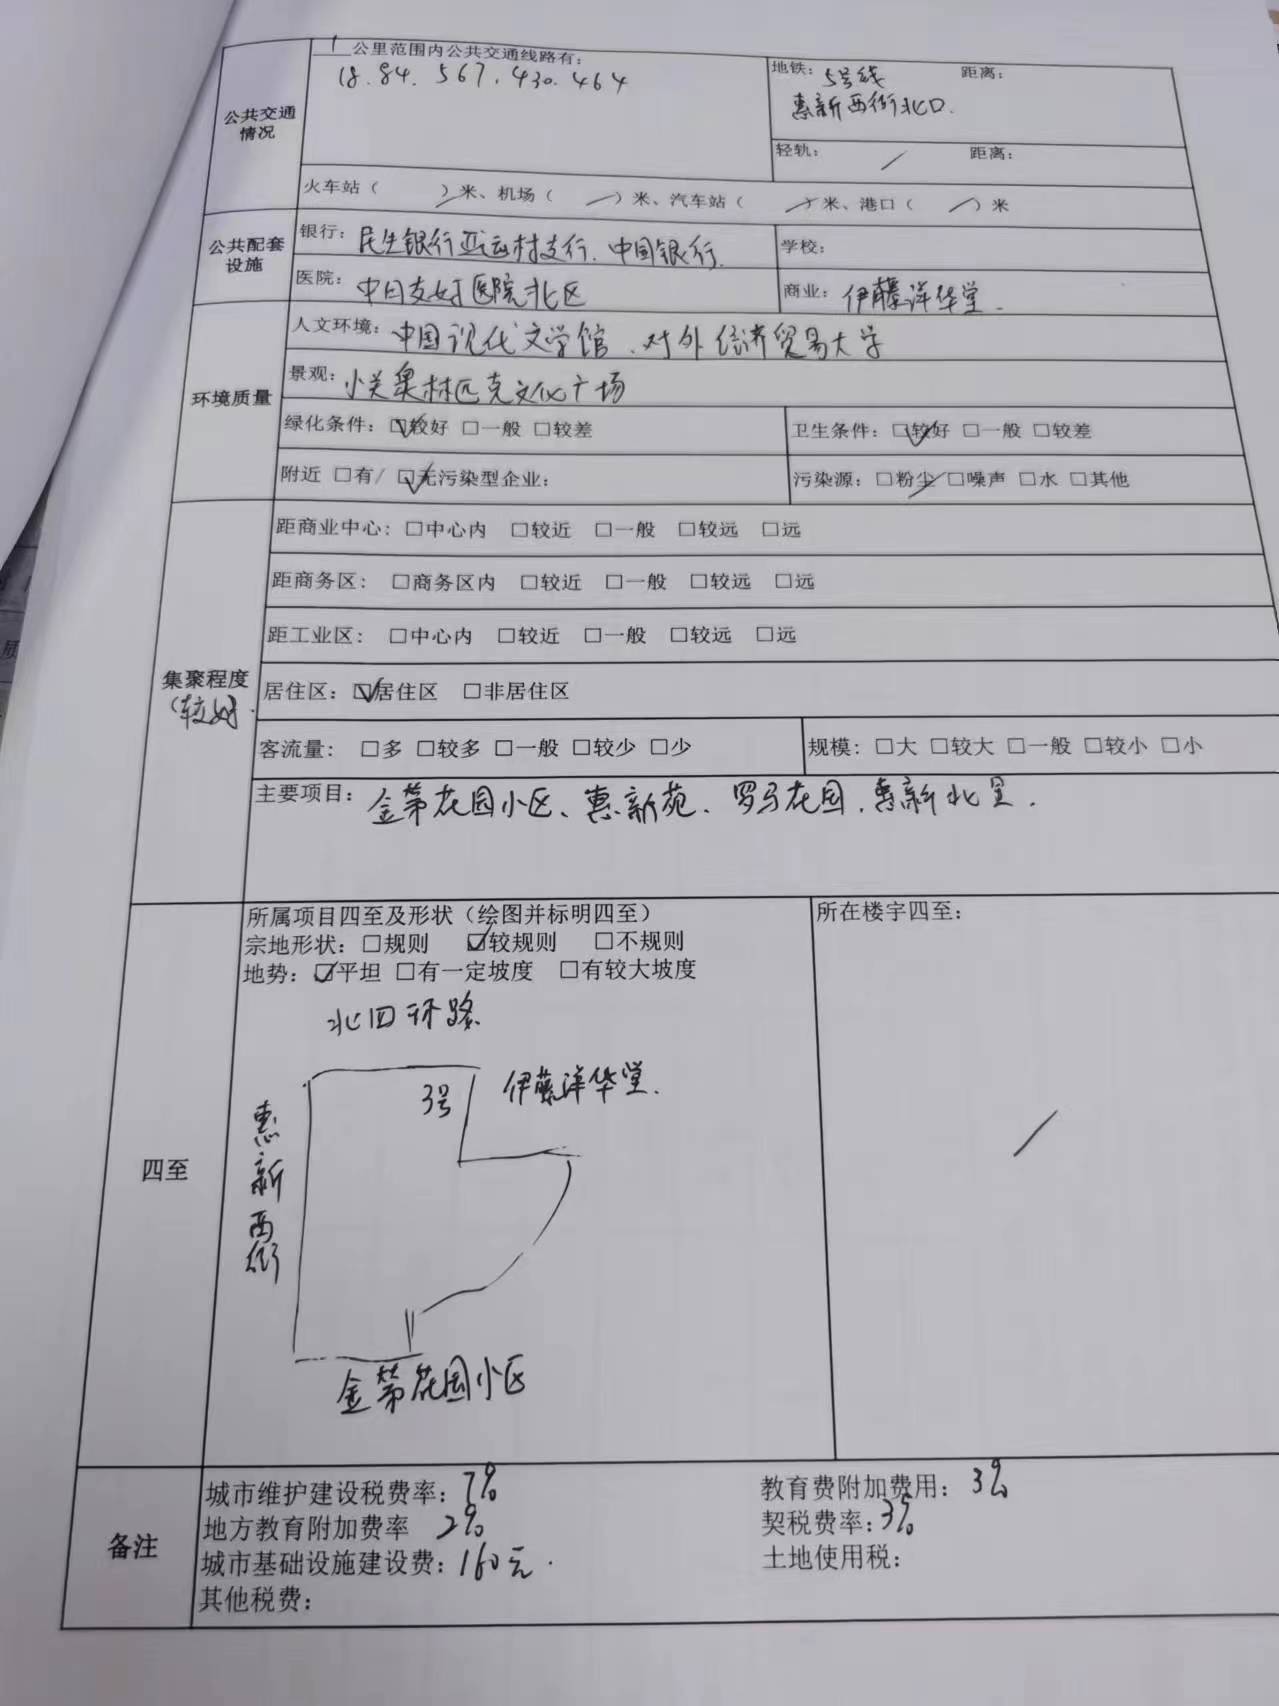 1 公里范围内公共交通线路有：
18. 84. 567. 430. 464
地铁： 5号线 距离：
惠新西街北口.
公共交通
情况
轻轨： / 距离：
火车站（ ）米、机场（ ）米、汽车站（ ）米、港口（ ）米
公共配套
设施
银行：民生银行亚运村支行. 中国银行.
学校：
医院：中日友好医院北区
商业：伊藤洋华堂.
环境质量
人文环境：中国现代文学馆、对外经济贸易大学
景观：小关奥林匹克文化广场
绿化条件：☑较好 □一般 □较差
卫生条件：☑较好 □一般 □较差
附近 □有/ ☑无污染型企业：
污染源：□粉尘 □噪声 □水 □其他
集聚程度
（较好）.
距商业中心：□中心内 □较近 □一般 □较远 □远
距商务区： □商务区内 □较近 □一般 □较远 □远
距工业区： □中心内 □较近 □一般 □较远 □远
居住区：☑居住区 □非居住区
客流量： □多 □较多 □一般 □较少 □少
规模：□大 □较大 □一般 □较小 □小
主要项目：金第花园小区、惠新苑、罗马花园、惠新北里.
四至
所属项目四至及形状（绘图并标明四至）
宗地形状：□规则 ☑较规则 □不规则
地势：☑平坦 □有一定坡度 □有较大坡度
北四环路
3号
伊藤洋华堂.
惠新西街
金第花园小区
所在楼宇四至：
/
备注
城市维护建设税费率：7%
教育费附加费用：3%
地方教育附加费率 2%
契税费率：3%
城市基础设施建设费：160元.
土地使用税：
其他税费：